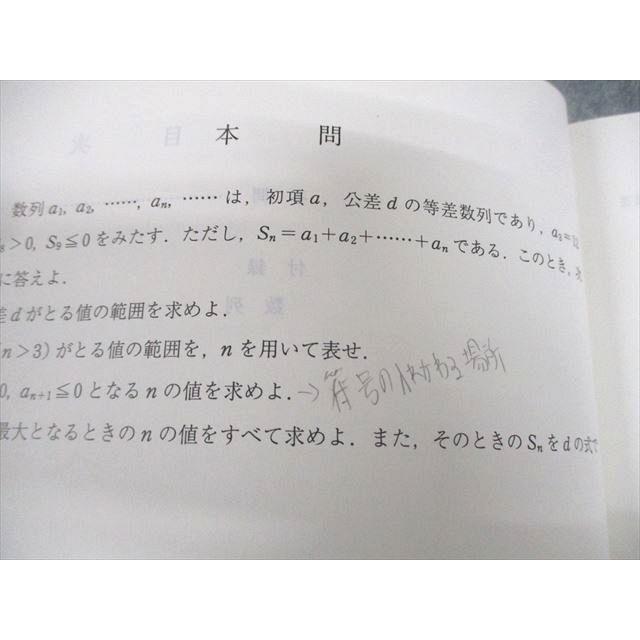 本 問
数列a₁, a₂, ……, aₙ, …… は, 初項a, 公差dの等差数列であり, a₃=12
₈>0, S₉≦0をみたす. ただし, Sₙ=a₁+a₂+……+aₙである. このとき, 次
に答えよ.
差dがとる値の範囲を求めよ.
(n>3)がとる値の範囲を, nを用いて表せ.
0, aₙ₊₁≦0となるnの値を求めよ. →符号の入れかわる場所
最大となるときのnの値をすべて求めよ. また, そのときのSₙをdの式で